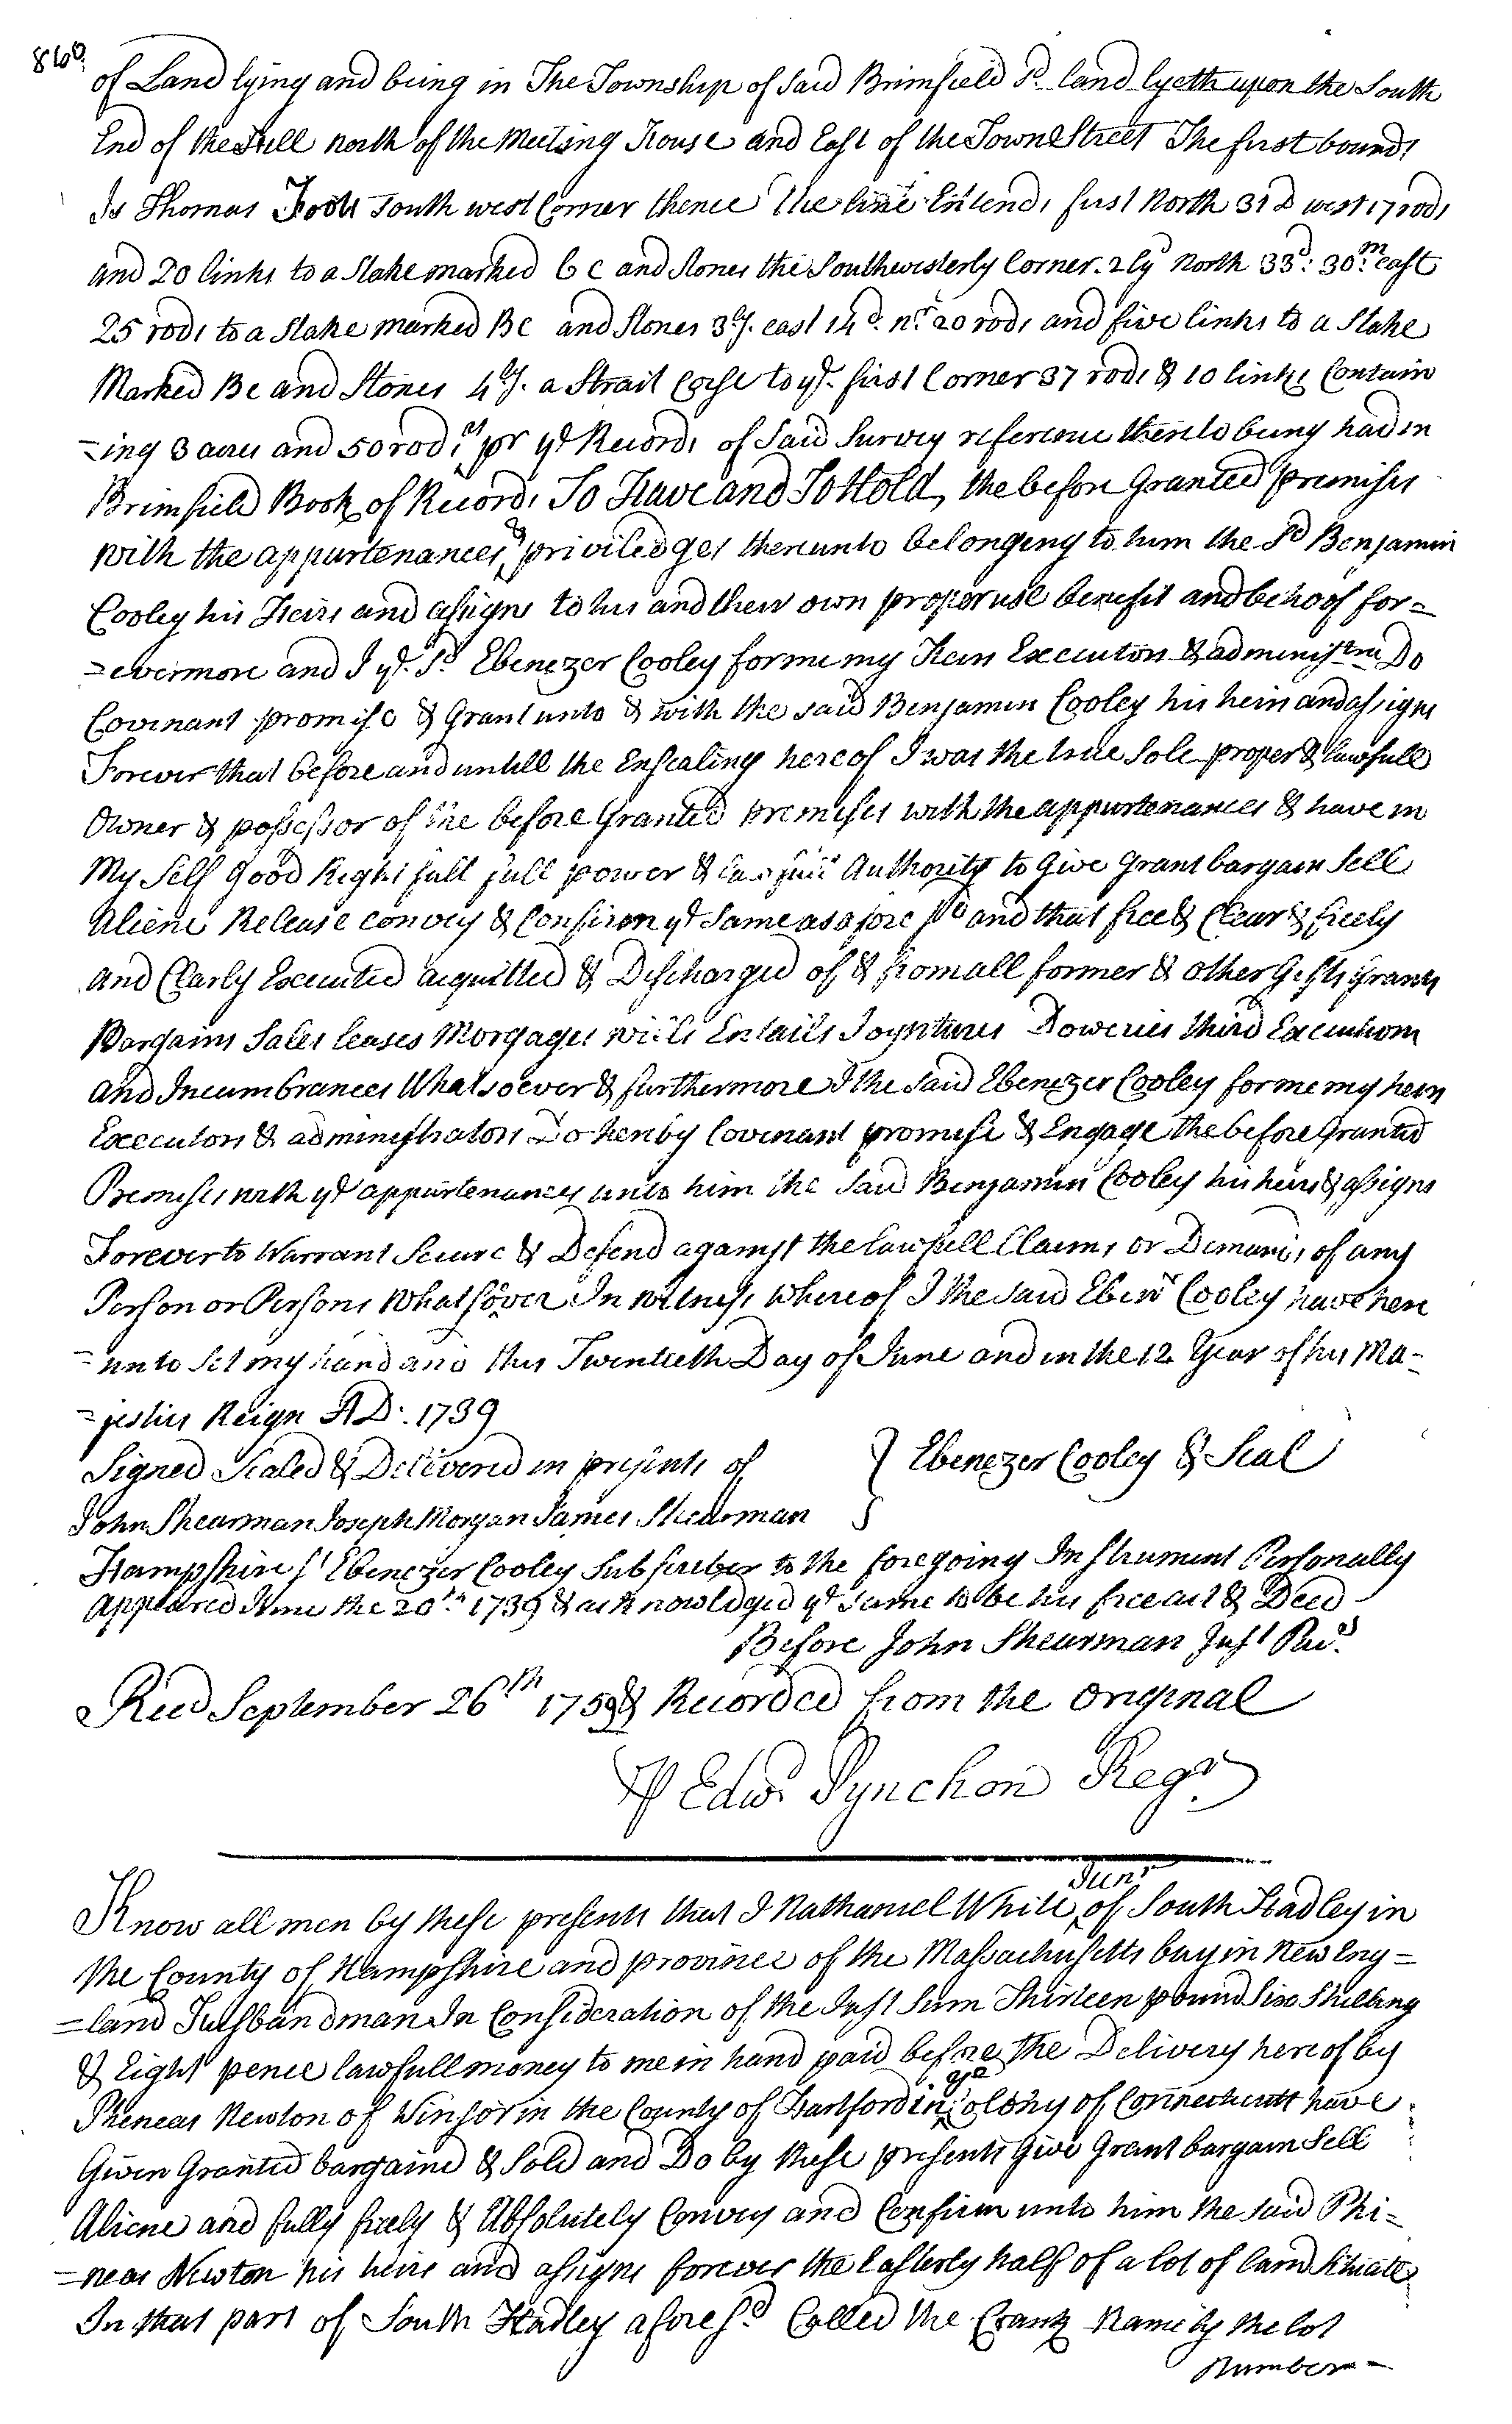 860
of Land lying and being in The Township of said Brimfield Sd land lyeth upon the South
End of the Hill north of the Meeting House and East of the Towne Street The first bounds
Is Thomas Foots South west Corner thence the line Extends first North 31 D west 17 rods
and 20 links to a Stake marked b c and stones the Southwesterly Corner. 2ly North 33d: 30m east
25 rods to a Stake marked BC and Stones 3ly. east 14d. no 20 rods and five links to a Stake
Marked Bc and Stones 4ly. a Strait Corse to ye first Corner 37 rods & 10 links Contain
=ing 3 acres and 50 rods as pr ye Records of Said Survey reference thereto being had in
Brimfield Book of Records To Have and To Hold, the before Granted premises
with the appurtenances & priviledges thereunto belonging to him the Sd Benjamin
Cooley his Heirs and assigns to his and their own proper use benefit and behoof for=
=evermore and I ye. Sd Ebenezer Cooley for me my Heirs Executors & administrs Do
Covenant promise & Grant unto & with the said Benjamin Cooley his heirs and assigns
Forever that before and untill the Ensealing hereof I was the true Sole proper & lawfull
Owner & possessor of the before Granted premises with the appurtenances & have in
My Self Good Right full full power & lawfull Authority to Give Grant bargain Sell
Aliene Release convey & Confirm ye Same as afore sd and that free & Clear & freely
and Clearly Executed acquitted & Discharged of & from all former & other Gifts Grants
Bargains Sales leases Morgages wills Entails Joyntures Doweries third Executions
and Incumbrances Whatsoever & furthermore I the said Ebenezer Cooley for me my heirs
Executors & administrators Do hereby Covenant promise & Engage the before Granted
Premises with ye appurtenances unto him the Said Benjamin Cooley his heirs & assigns
Forever to Warrant Secure & Defend against the lawfull Claims or Demands of any
Person or Persons Whatsover In witness whereof I the Said Ebenr Cooley have here
=unto Set my hand and this Twentieth Day of June and in the 12 Year of his Ma=
=jesties Reign AD. 1739
Signed Sealed & Delivered in presents of
Ebenezer Cooley & Seal
John Shearman Joseph Morgan James Shearman
Hampshire Ss Ebenezer Cooley Subscriber to the foregoing Instrument Personally
Appeared June the 20th 1739 & acknowledged ye same to be his free act & Deed
Before John Shearman Just Pacs.
Recd September 26th 1739 & Recorded from the Original
P Edwd Pynchon Regr
Know all men by these presents that I Nathaniel White Junr of South Hadley in
the County of Hampshire and province of the Massachusetts bay in New Eng=
=land Husbandman In Consideration of the Just Sum Thirteen pound Six Shilling
& Eight pence lawfull money to me in hand paid before the Delivery hereof by
Pheneas Newton of Winsor in the County of Hartford in ye Colony of Connecticutt have
Given Granted bargaind & Sold and Do by these presents Give Grant bargain Sell
Aliene and fully freely & Absolutely Convey and Confirm unto him the said Phi=
=neas Newton his heirs and assigns forever the Easterly half of a lot of land Situate
In that part of South Hadley afore sd Called the Crank Namely the lot
Number=